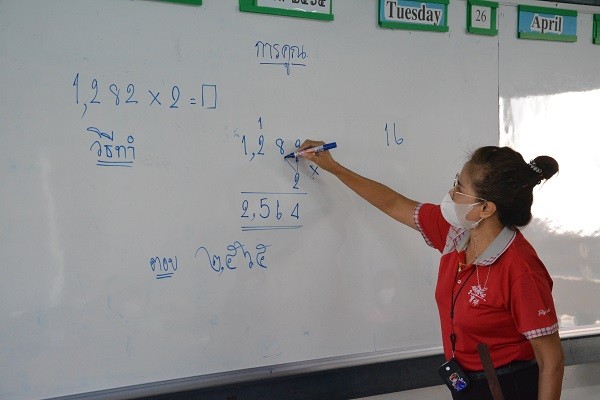 Tuesday 26 April
การคูณ
1,282 × 2 = □
วิธีทำ
1
1,282
×
2
2,564
16
ตอบ ๒,๕๖๔